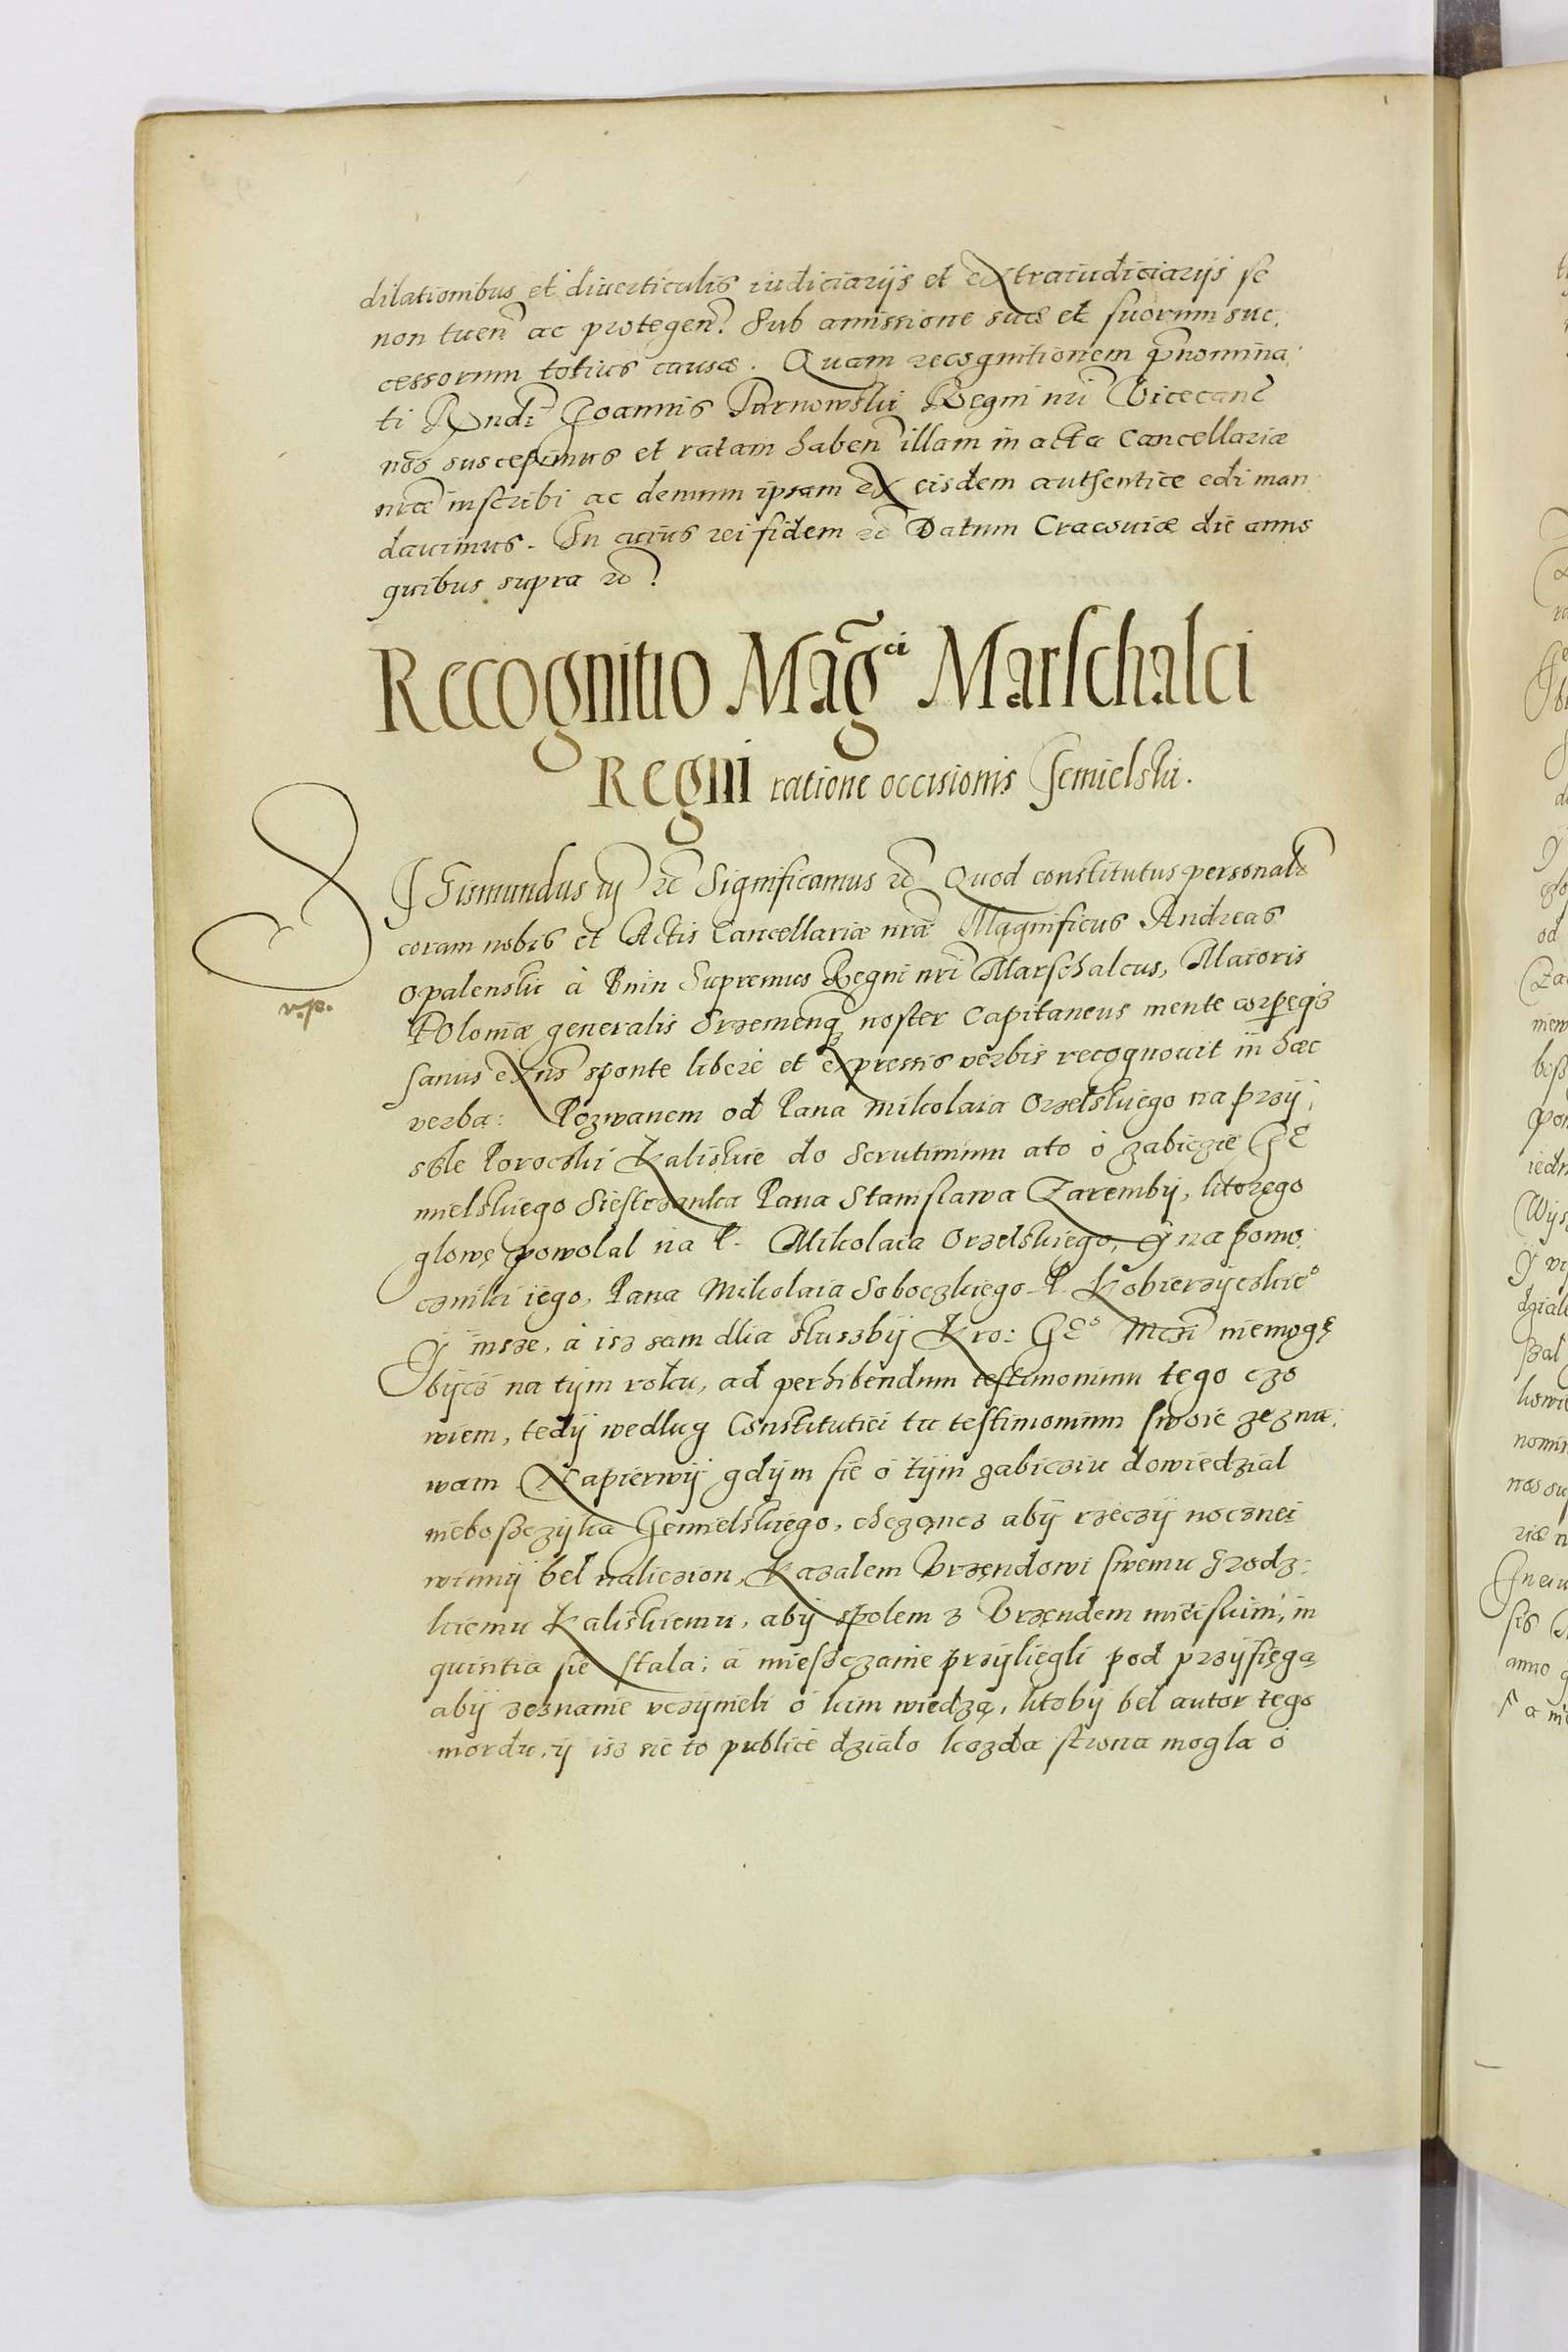 dilationibus et diverticulis iudiciarijs et extraiudiciarijs se
non tuen̄ ac protegen̄. Sub amissione suæ et suorum suc,
cessorum totius causæ. Quam recognitionem p̄nomina,
ti Rn̄di Joannis Tarnowski Regni nr̄i Vicecanc̄
nos suscepimus et ratam haben̄ illam in acta Cancellariæ
nr̄æ inscribi ac demum ipsam ex eisdem authentice edi man
davimus. In cuius rei fidem &c̄ Datum Cracoviæ die anno
quibus supra &c̄.
Recognitio Mag̃ci Marschalci
Regni ratione occisionis Jemielski.
SIGismundus iij &c̄ Significamus &c̄ Quod constitutus personal̄r
coram nobis et Actis Cancellariæ nr̄æ Magnificus Andreas
Opalenski à Bnin Supremus Regni nr̄i Marschalcus, Maioris
Poloniæ generalis Sremenq̨ noster Capitaneus mente corpeq̨
sanus exn̄s sponte libere et expressis verbis recognovit in hæc
verba: Pozwanem od Pana Mikolaia Orzelskiego na przy,
szle Poroczki Kaliskie do Scrutinium ato ò zabiczie GE
mielskiego Siestrzanka Pana Stanislawa Zaremby, ktorego
glowę powolal na P. Mikolaia Orzelskiego, y na pomo
cznikí iego, Pana Mikolaia Soboczkiego P. Kobierzyczkieo
Y insze, à isz sam dlia sluszby Kro: GEo Mczi niemogę
bycz na tym roku, ad perhibendum testimonium tego czo
wiem, tedy wedlug Constitutiei tu testimonium swoie zezna,
wam Napierwy gdym sie ò tym zabiciu dowiedzial
nieboszczyka Gemielskiego, chczęncz aby rzeczy nocznei
winny bel naliezion, Kazalem Vrzęndowi swemu Grodz,
kiemu Kaliskiemu, aby spolem z Vrzęndem mieiskim, in
quisitia sie stala; à mieszczanie przyliegli pod przysięgą
aby zeznanie vczynieli ò kim wiedzą, ktoby bel autor tego
mordu, y isz sie to publice dzialo kozda strona mogla ò